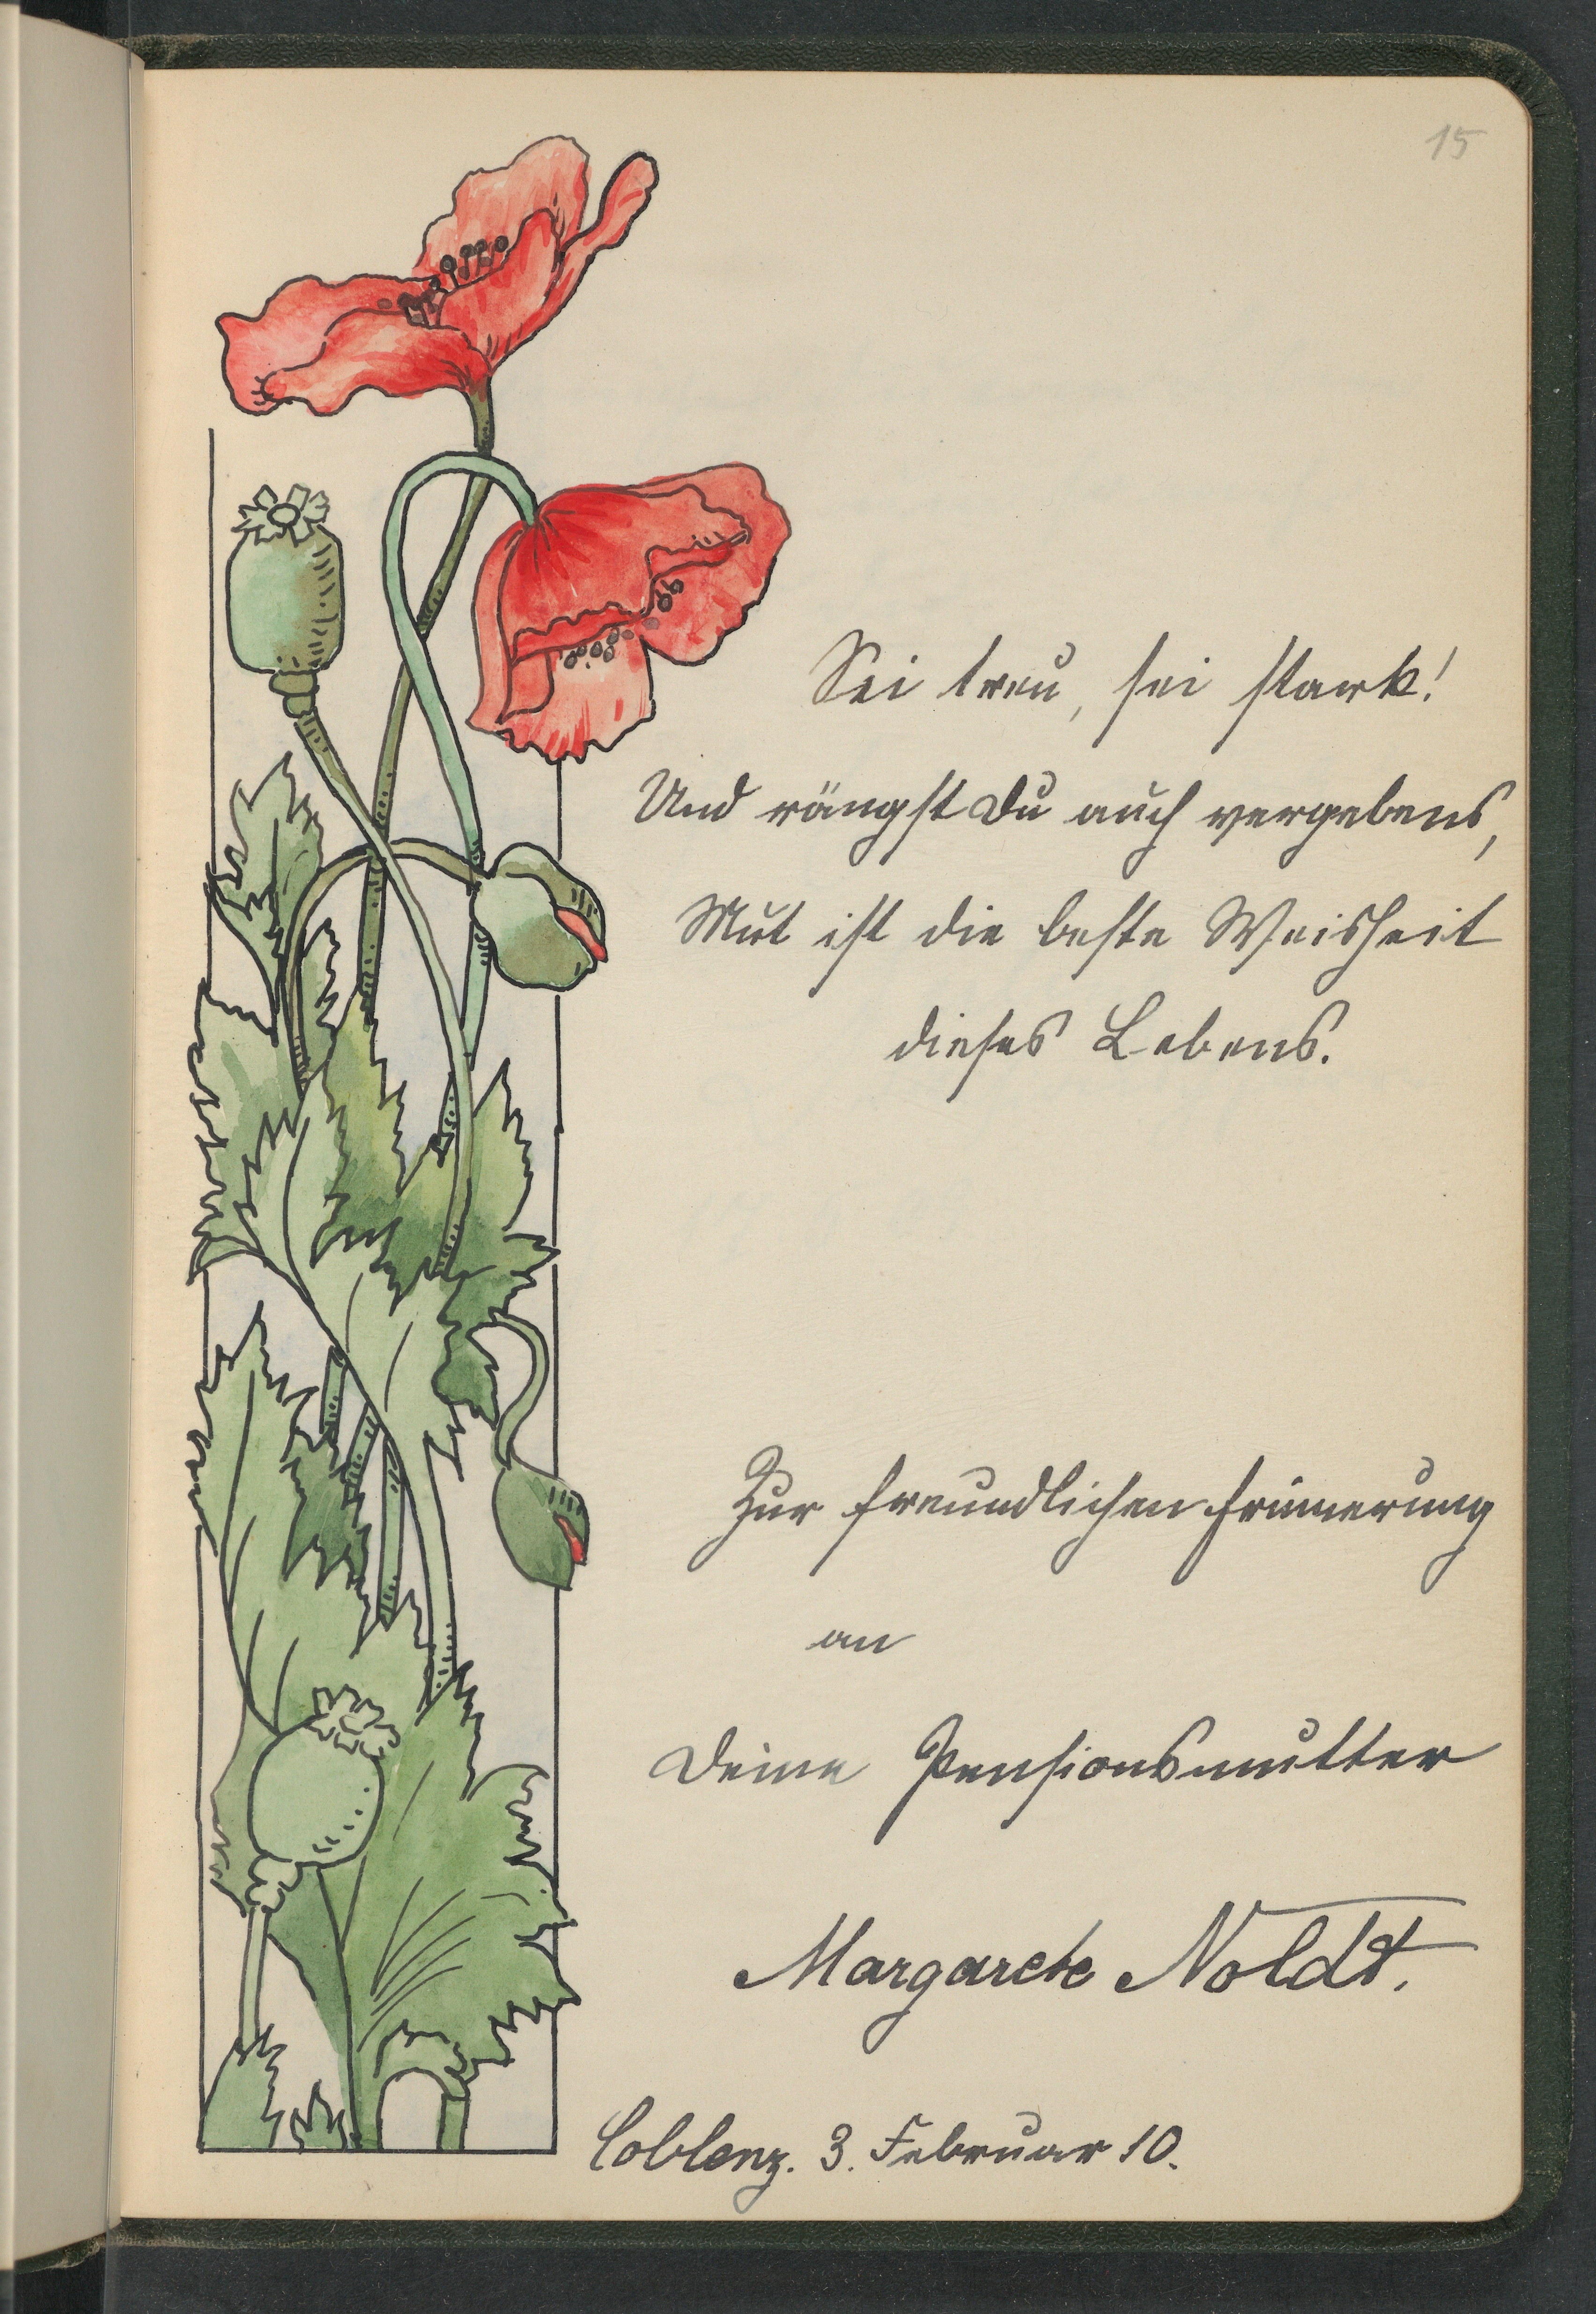 15
Sei treu, sei stark!
Und rängst Du auch vergebens,
Mut ist die beste Weisheit
dieses Lebens.
Zur freundlichen Erinnerung
an
Deine Pensionsmutter
Margarete Noldt.
Coblenz. 3. Februar 10.